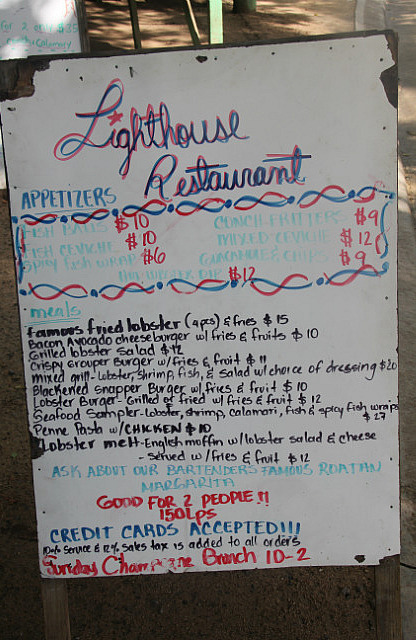 For 2 only $35
Lighthouse
Restaurant
APPETIZERS
FISH BALLS $10 CONCH FRITTERS $9
FISH CEVICHE $10 MIXED CEVICHE $12
Spicy fish wrap $6 GUACAMOLE & CHIPS $9
DIP $12
meals
Famous fried lobster (4pcs) & fries $15
Bacon Avocado cheeseburger w/ fries & fruits $10
Grilled lobster Salad $12
Crispy Grouper Burger w/ fries & fruit $11
mixed grill-Lobster, shrimp, fish, & salad w/ choice of dressing $20
Blackened snapper Burger w/ fries & fruit $10
Lobster Burger- Grilled or fried w/ fries & fruit $12
Seafood Sampler-Lobster, shrimp, calamari, fish & spicy fish wraps
$27
Penne Pasta w/ CHICKEN $10
Lobster melt-English moffin w/ lobster salad & cheese
- served w/ fries & fruit $12
ASK ABOUT OUR BARTENDERS FAMOUS ROATAN
MARGARITA
GOOD FOR 2 PEOPLE!!
150LPS
CREDIT CARDS ACCEPTED!!!
10% service & 12% sales tax is added to all orders
Sunday Champagne Brunch 10-2